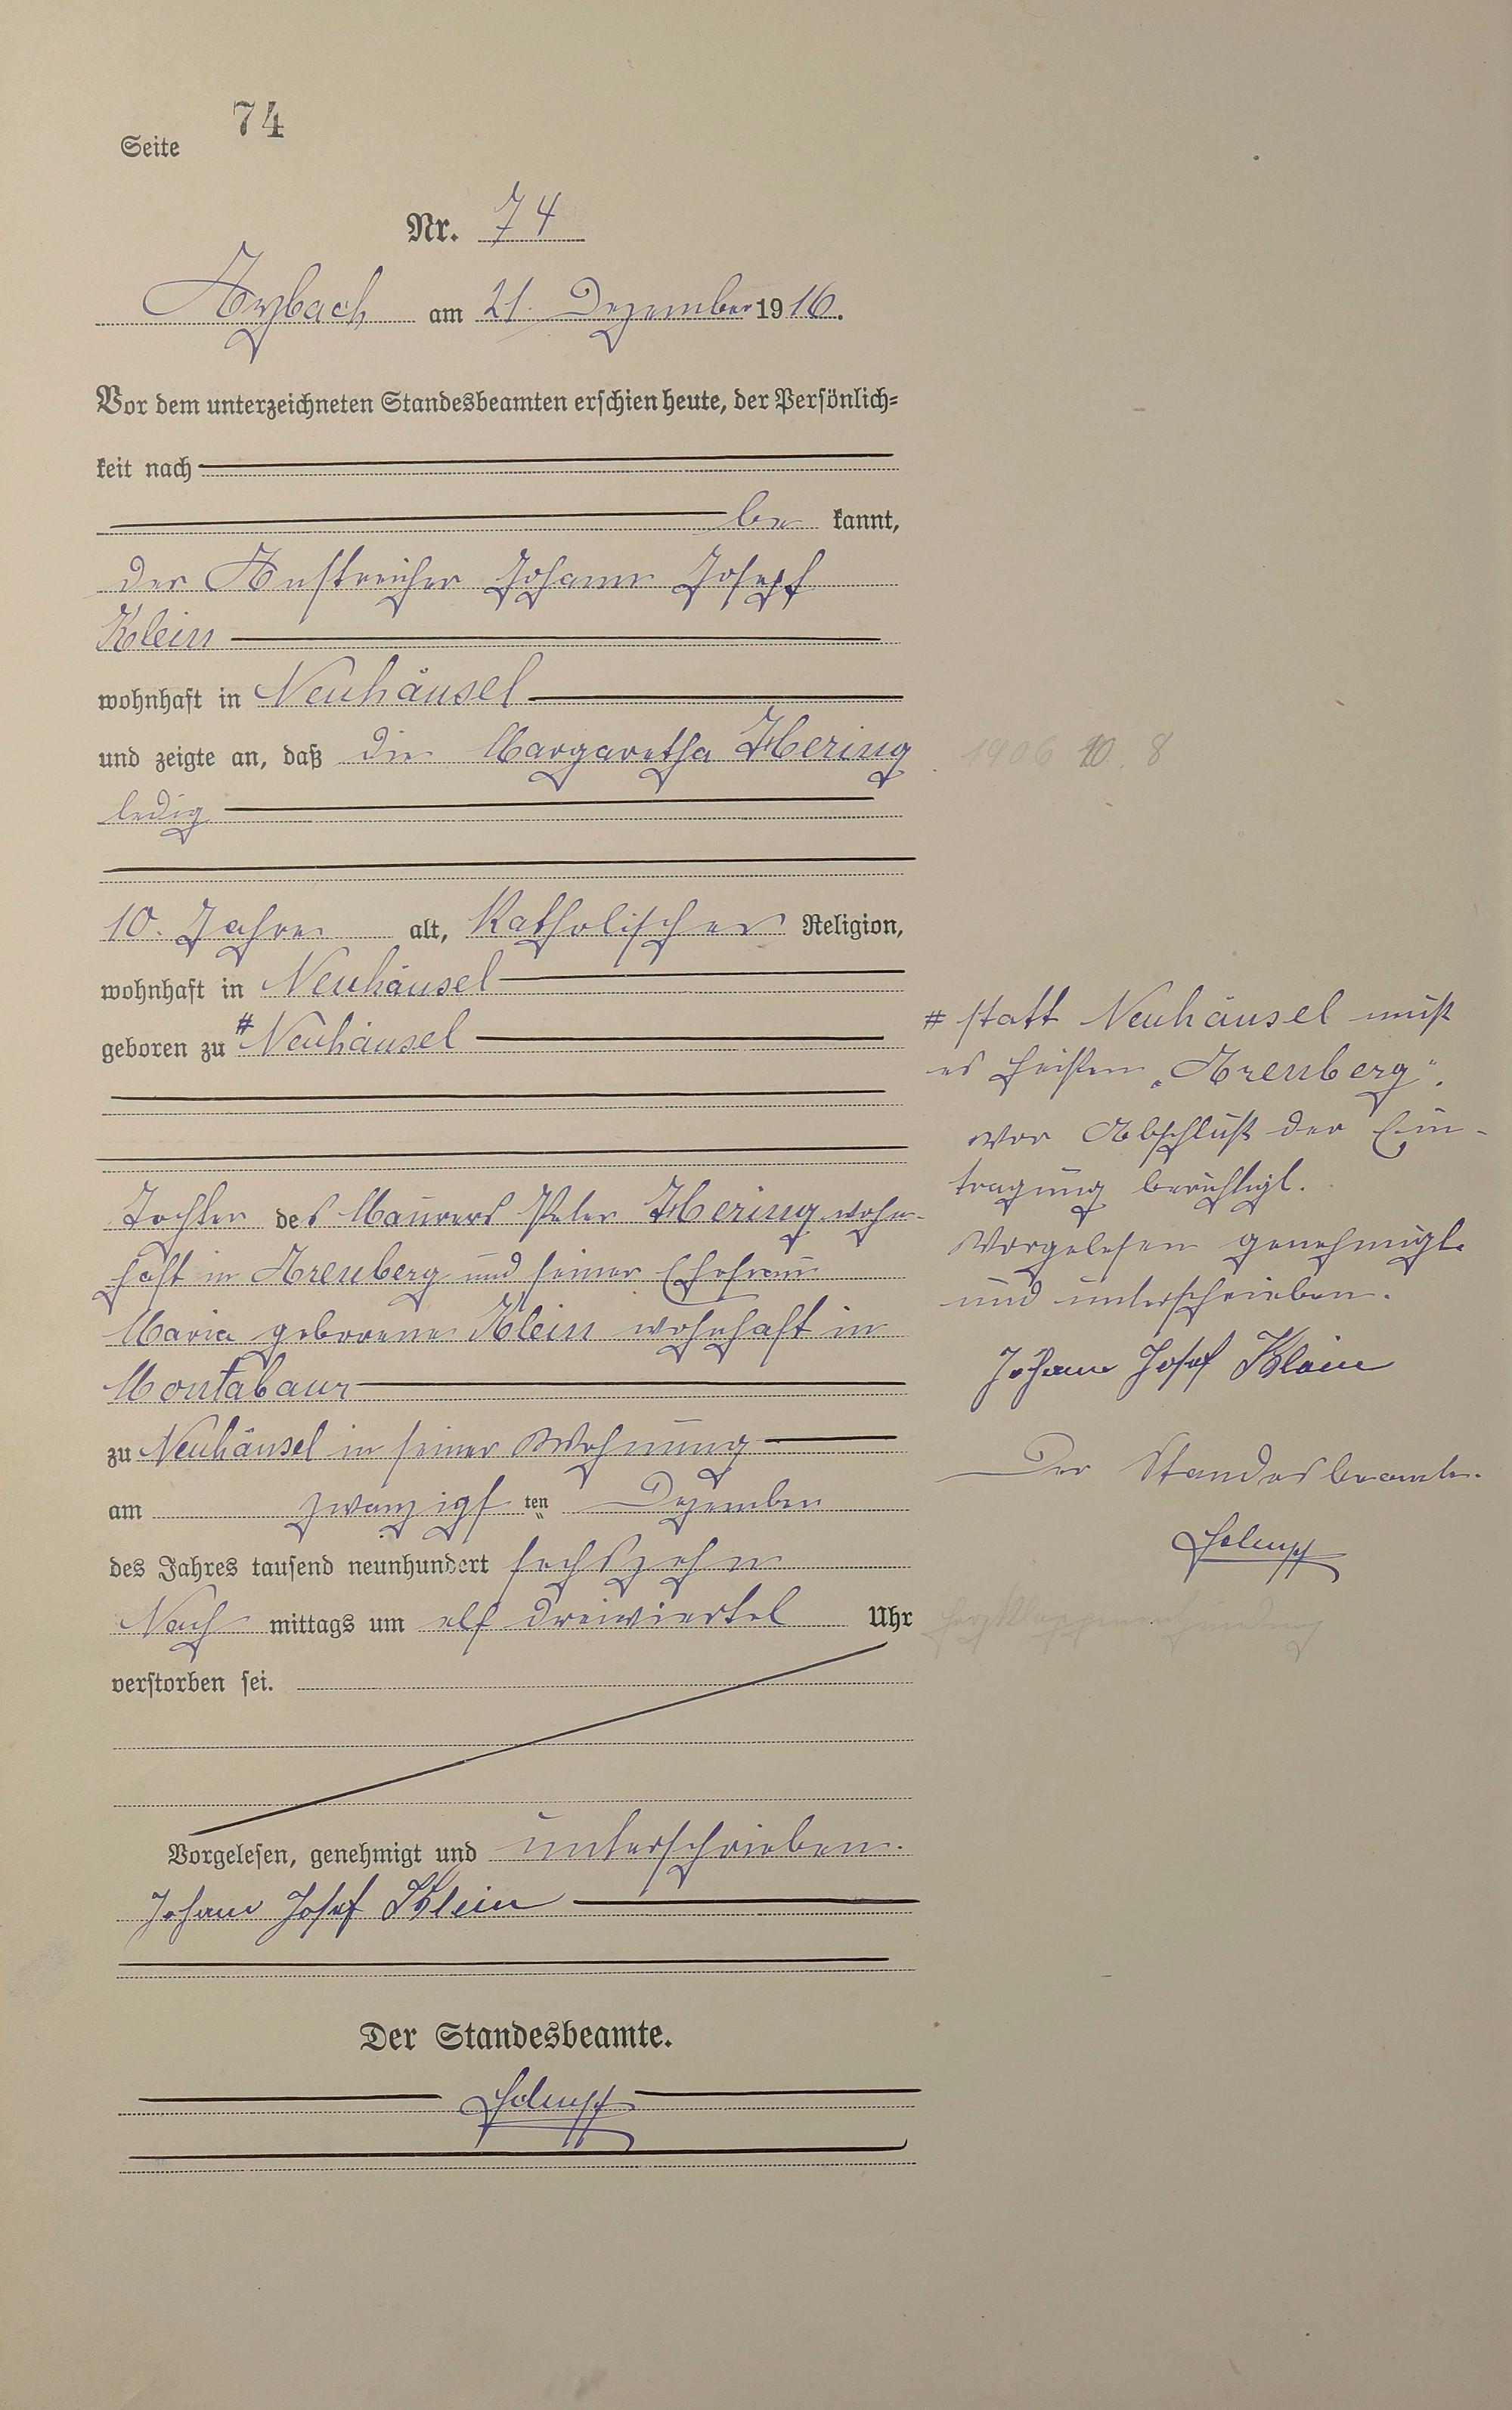 74
Seite
Nr. 74
Arzbach am 21. Dezember 1916.
Vor dem unterzeichneten Standesbeamten erschien heute, der Persönlich-
keit nach
be kannt,
der Anstreicher Johann Josepf
Klein
wohnhaft in Neuhäusel
und zeigte an, daß die Margaretha Hering
1906 10. 8
ledig
10. Jahre alt, Katholischer Religion,
wohnhaft in Neuhäusel
geboren zu # Neuhäusel
Tochter des Maurers Peter Hering wohn-
haft in Arenberg und seiner Ehefrau
Maria geborene Klein wohnhaft in
Montabaur
zu Neuhäusel in seiner Wohnung
am zwanzigsten Dezember
des Jahres tausend neunhundert sechszehn
Nach mittags um elf dreiviertel Uhr
verstorben sei.
Vorgelesen, genehmigt und unterschrieben.
Johann Josef Klein
Der Standesbeamte.
# statt Neuhäusel muß
es heißen „Arenberg".
Vor Abschluß der Ein-
tragung berichtigt.
Vorgelesen genehmigt
und unterschrieben.
Johann Josef Klein
Der Standesbeamte.